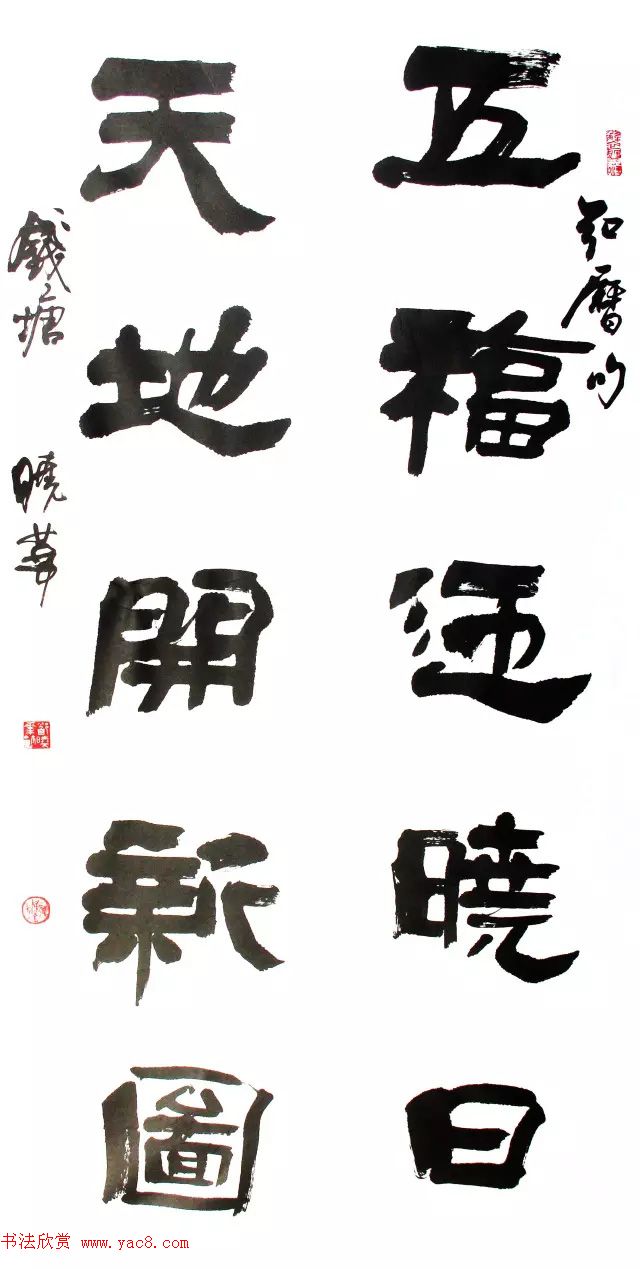 弘曆句
五福迎曉日
天地開新圖
錢塘 曉
书法欣赏 www.yac8.com